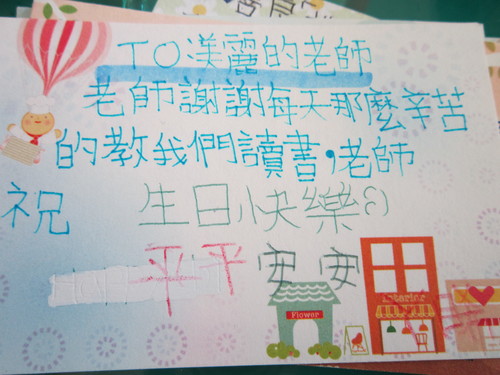 TO漢麗的老師
老師謝謝每天那麼辛苦
的教我們讀書,老師
祝 生日快樂
平平安安
Interior
Flower